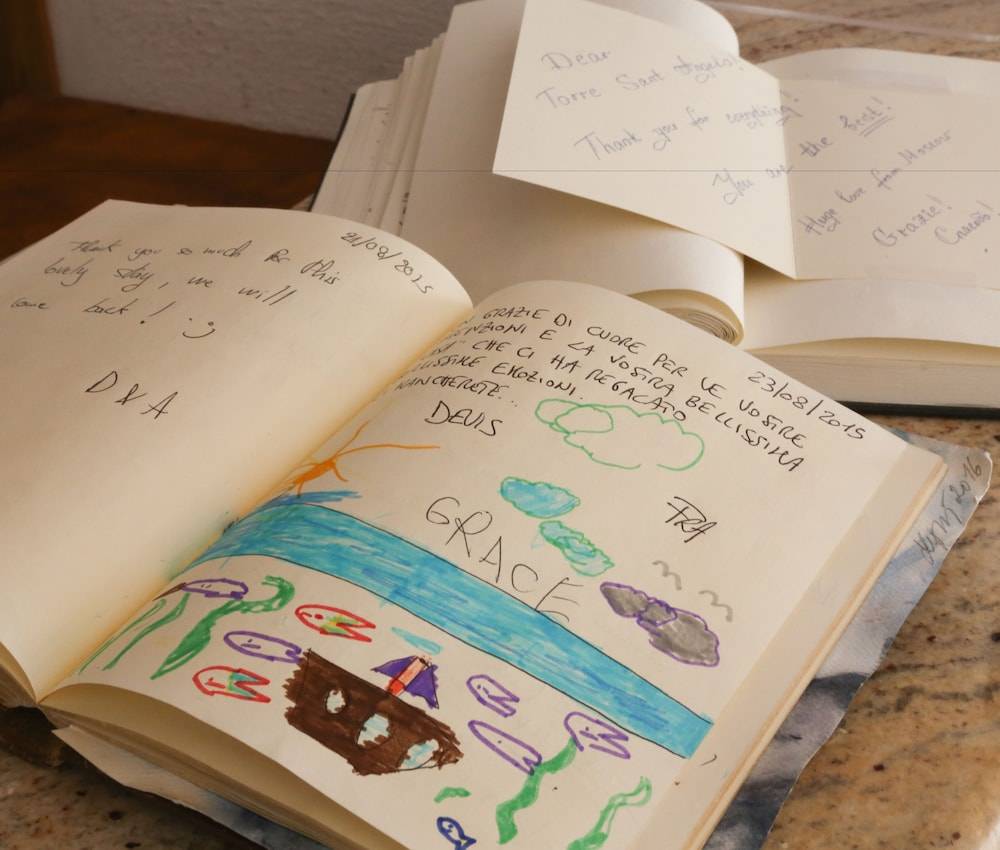 21/08/2015
Thank you so much for this
lovely stay, we will
come back! :)
D & A
23/08/2015
GRAZIE DI CUORE PER LE VOSTRE
E LA VOSTRA BELLISSIMA
CHE CI HA REGALATO
EMOZIONI.
MANCHERETE...
DEVIS
FRA
GRACE
2016
Dear
Torre Sant Angelo!
Thank you for everything!
You are the best!
Huge love from
Grazie!